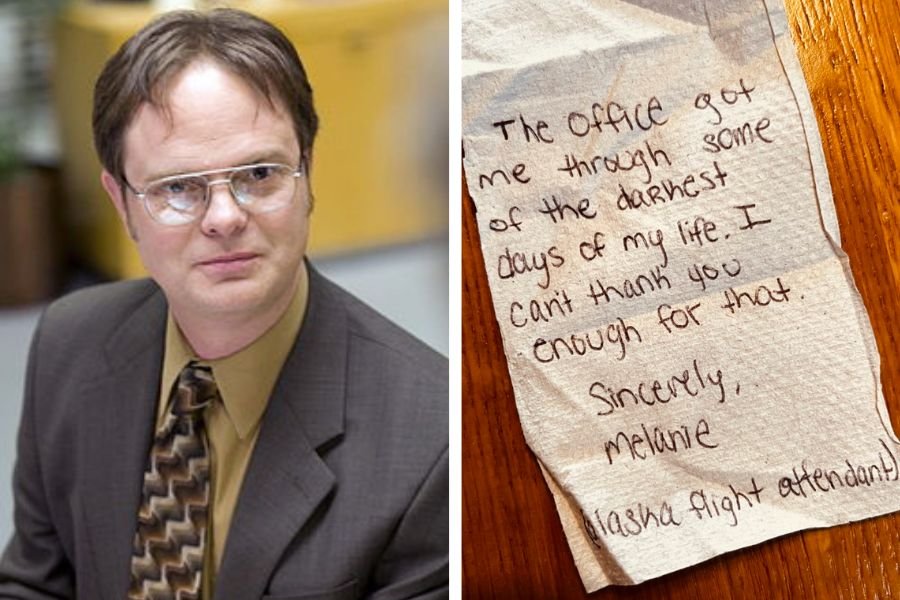 The Office got
me through some
of the darkest
days of my life. I
can't thank you
enough for that.
Sincerely,
Melanie
(Alaska flight attendant)